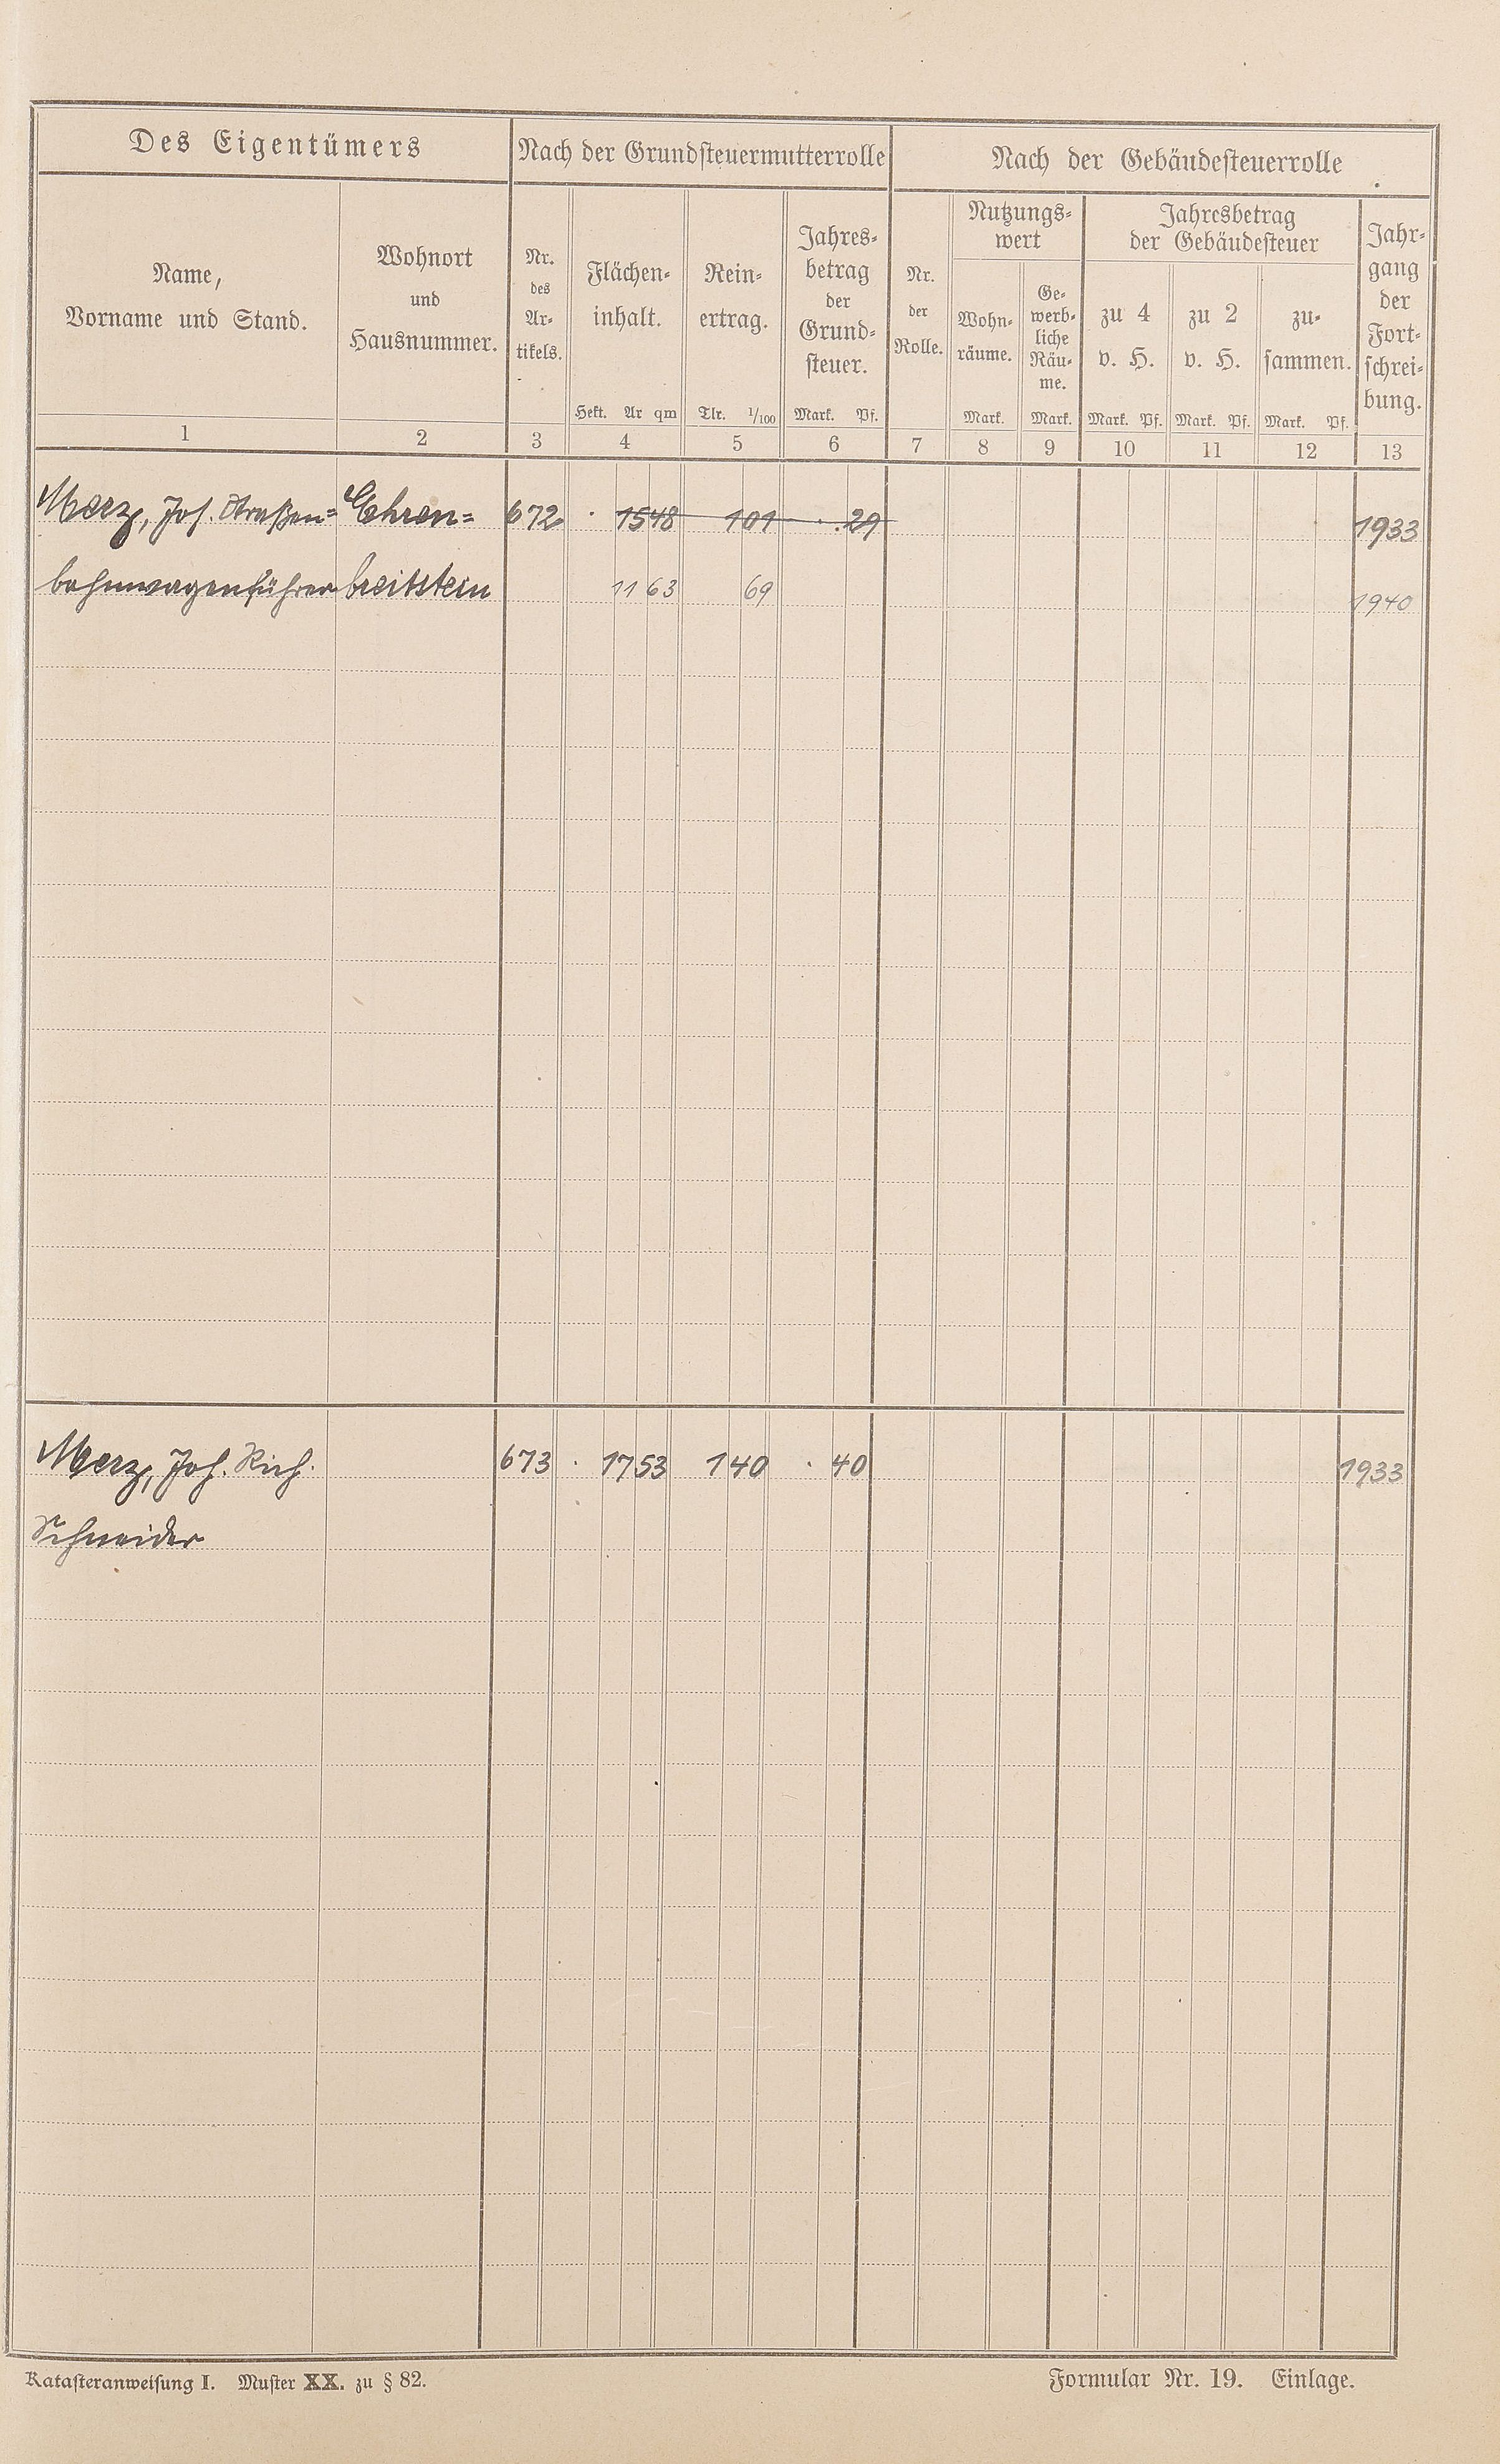 Des Eigentümers
Nach der Grundsteuermutterrolle
Nach der Gebäudesteuerrolle
Name,
Vorname und Stand.
Wohnort
und
Hausnummer.
Nr.
des
Ar-
tikels.
Flächen-
inhalt.
Hekt. Ar qm
Rein-
ertrag.
Tlr. 1/100
Jahres-
betrag
der
Grund-
steuer.
Mark. Pf.
Nr.
der
Rolle.
Nutzungs-
wert
Wohn-
räume.
Mark.
Ge-
werb-
liche
Räu-
me.
Mark.
Jahresbetrag
der Gebäudesteuer
zu 4
v. H.
Mark. Pf.
zu 2
v. H.
Mark. Pf.
zu-
sammen.
Mark. Pf.
Jahr-
gang
der
Fort-
schrei-
bung.
1 2 3 4 5 6 7 8 9 10 11 12 13
Merz, Joh. Straßen= Ehren= 672 · 1548 101 · 29 1933
bahnwagenführer breitstein 11 63 69 1940
Merz, Joh. Rich. 673 · 1753 140 · 40 1933
Schneider
Katasteranweisung I. Muster XX. zu § 82.
Formular Nr. 19. Einlage.